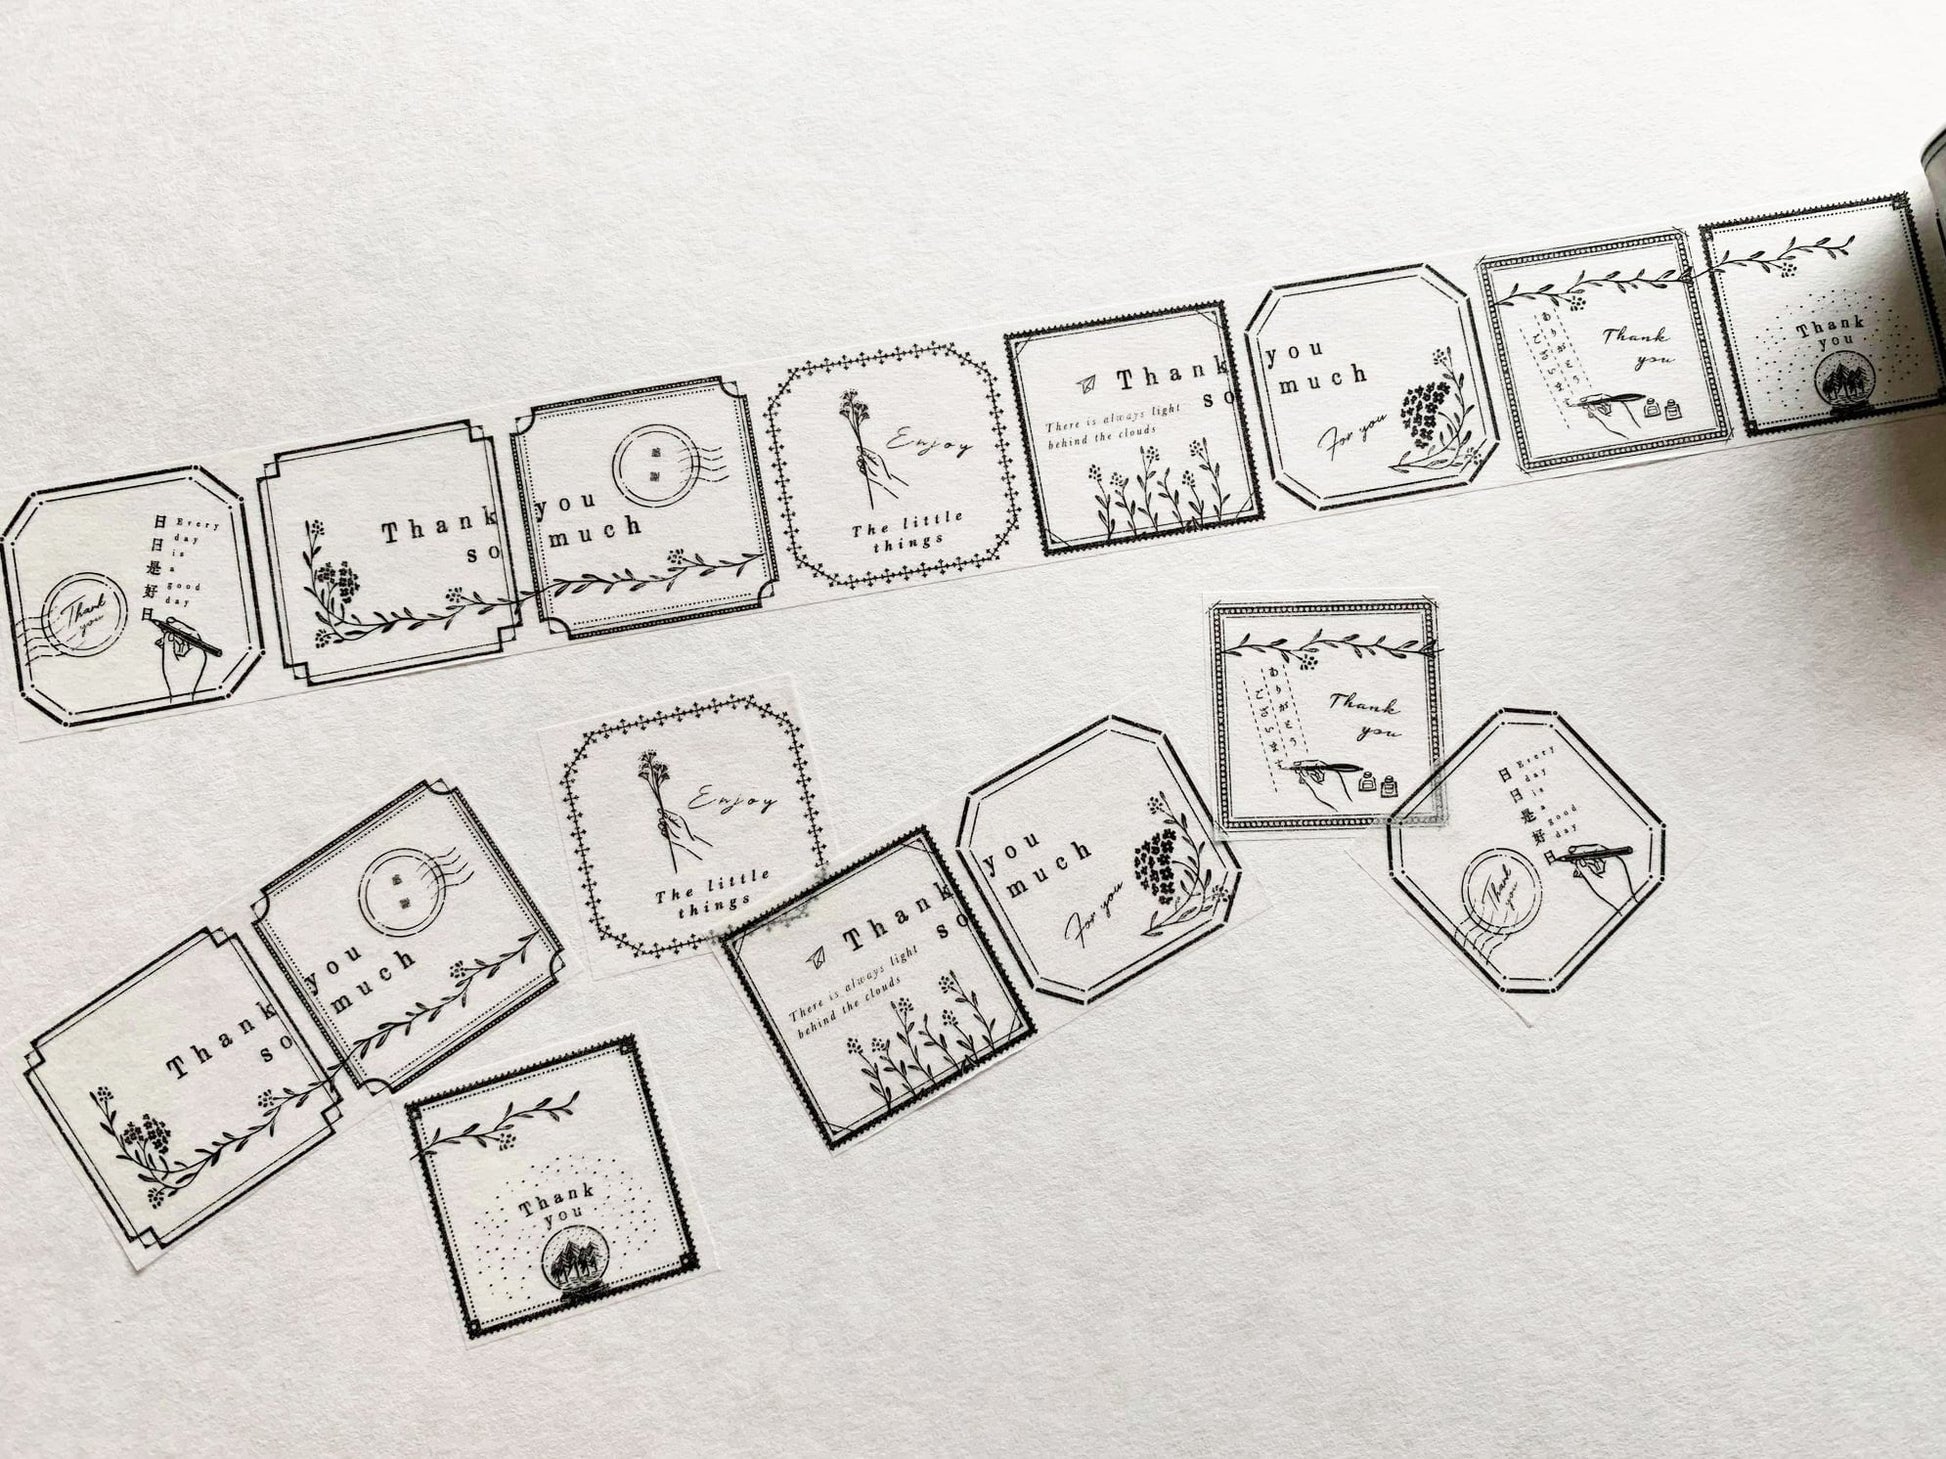 日日是好日
Every
day
is
a
good
day
Thank
you
Thank
so
you
much
Enjoy
The little
things
Thank
so
There is always light
behind the clouds
you
much
For you
ありがとう
ございま
Thank
you
Thank
you
Enjoy
The little
things
ありがとう
ございま
Thank
you
日日是好日
Every
day
is
a
good
day
Thank
you
you
much
Thank
so
Thank
so
There is always light
behind the clouds
you
much
For you
Thank
you